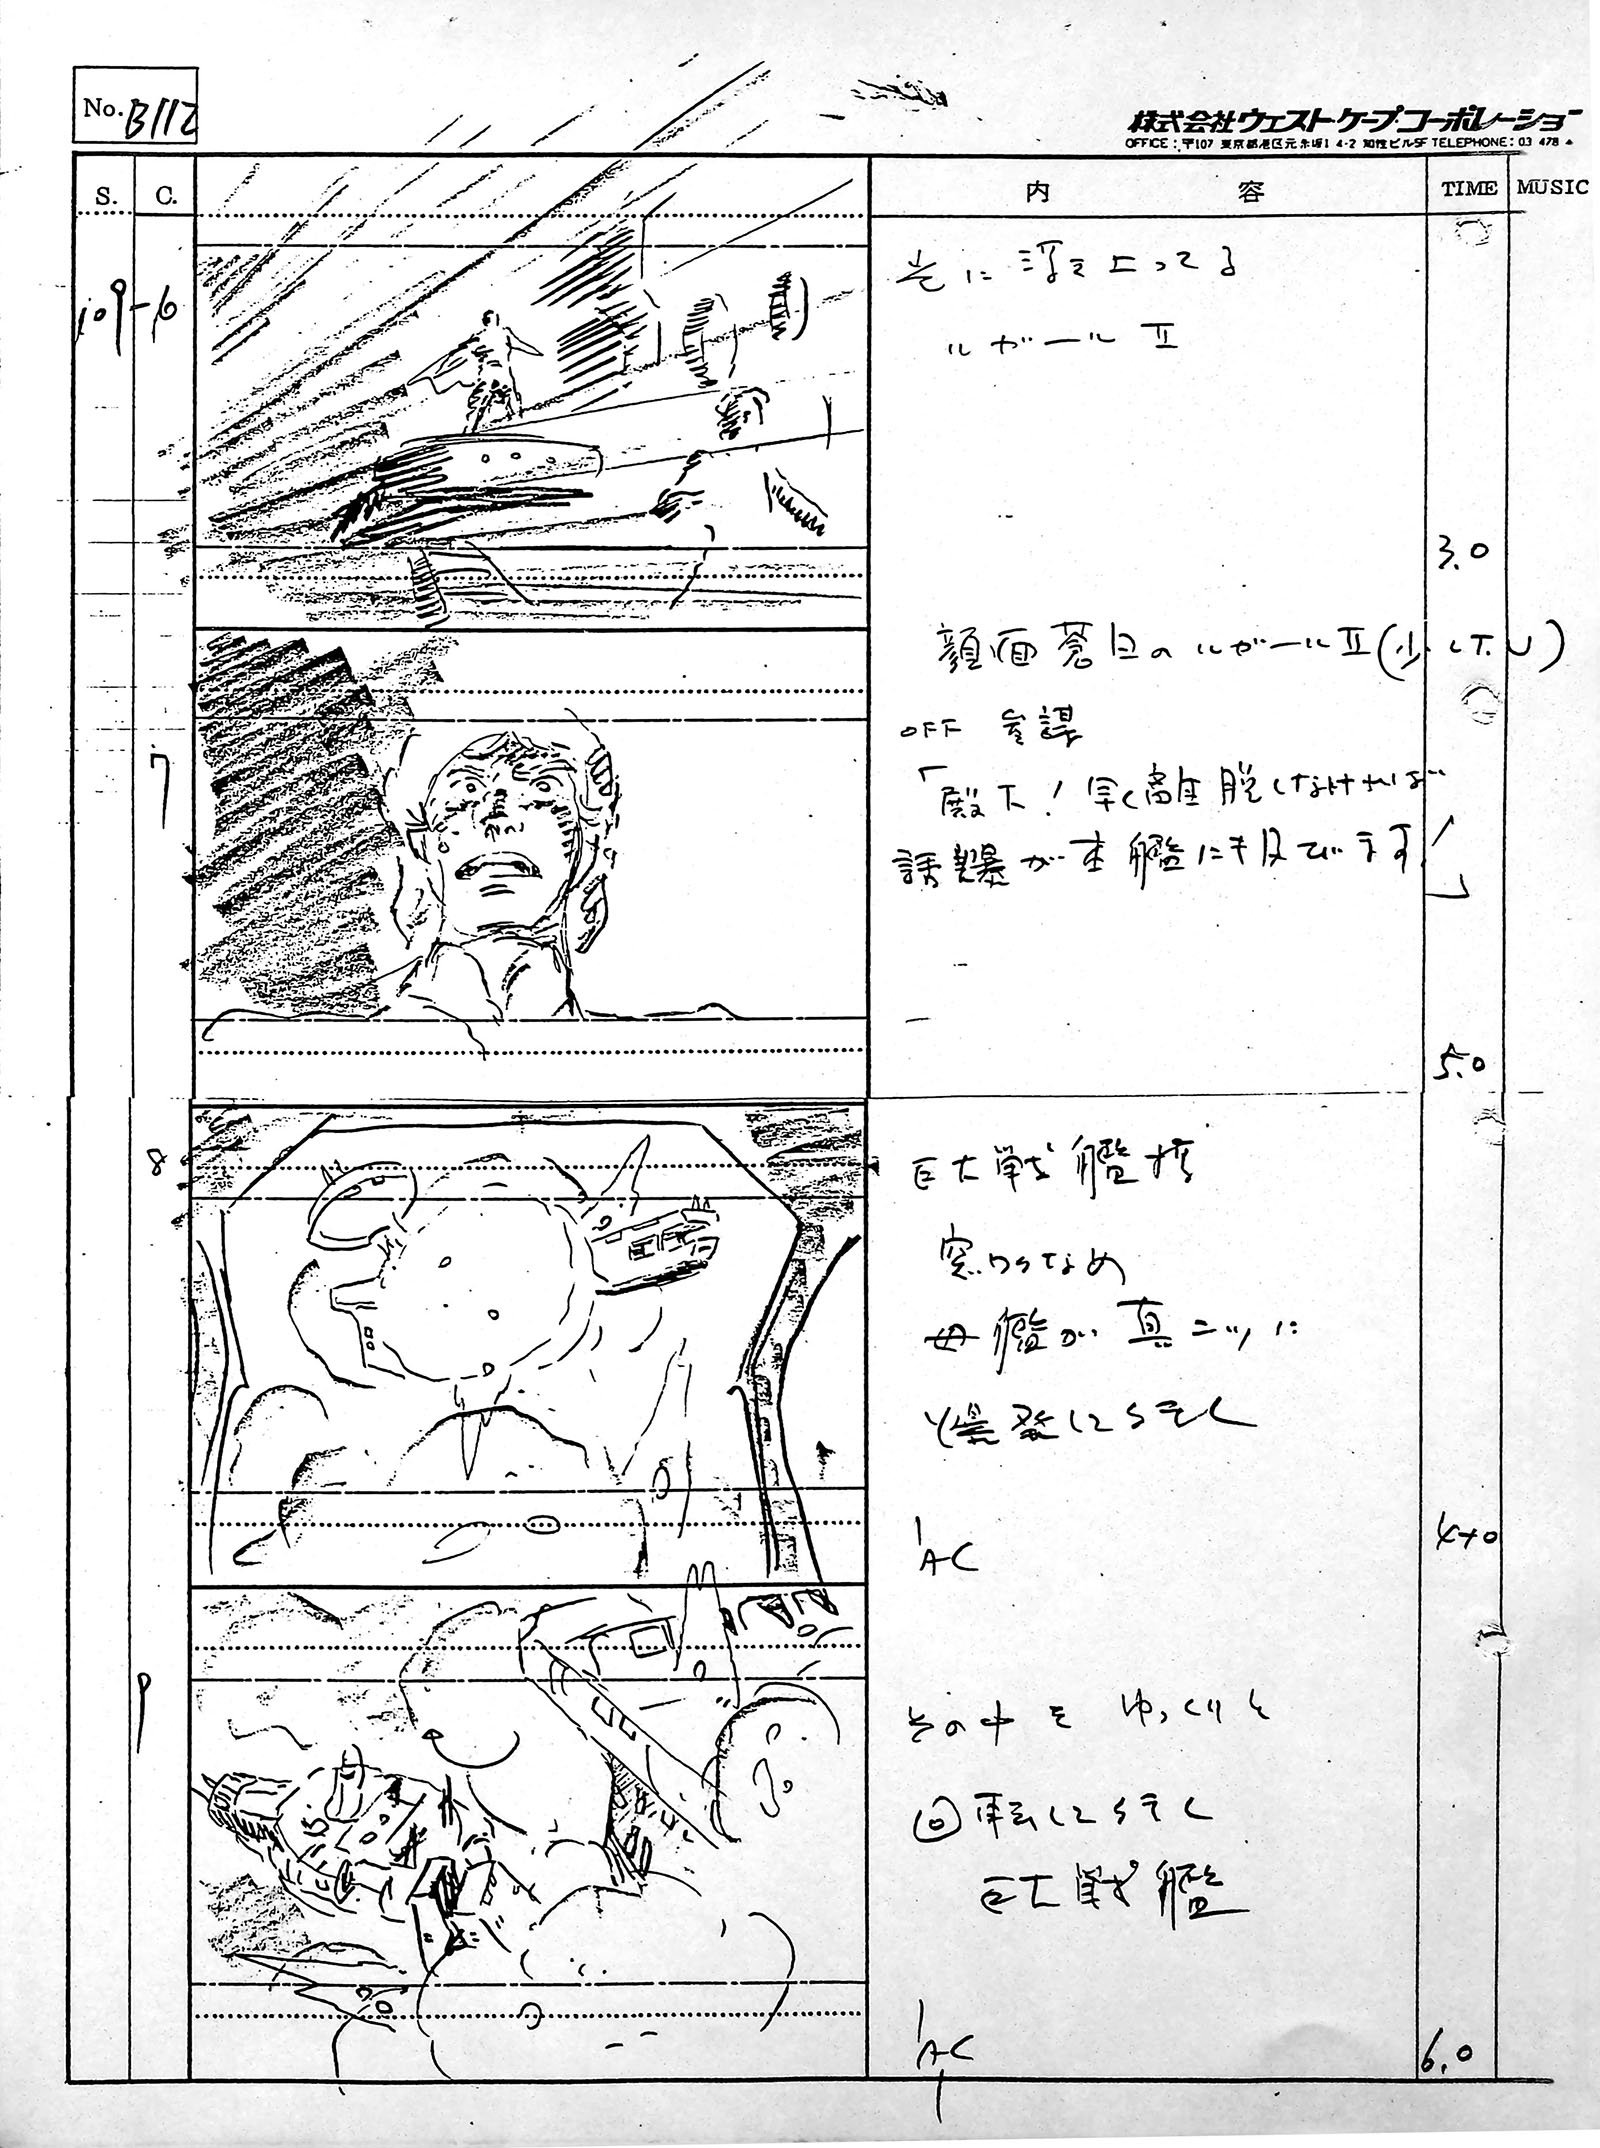 No. B112
株式会社ウェストケープコーポレーショ
OFFICE：〒107 東京都港区元赤坂1 4-2 知性ビル5F TELEPHONE：03 478
S. C. 内 容 TIME MUSIC
109-6
光に浮き上ってる
ルガールⅡ
3.0
7
顔面蒼白のルガールⅡ(少しT.U)
OFF 参謀
「殿下！早く離脱しなければ
誘爆が本艦にも及びます！」
5.0
8
巨大戦艦橋
窓ワクなめ
母艦が真二ツに
爆発してらく
AC
4+0
9
その中をゆっくりと
回転してらく
巨大戦艦
AC
6.0